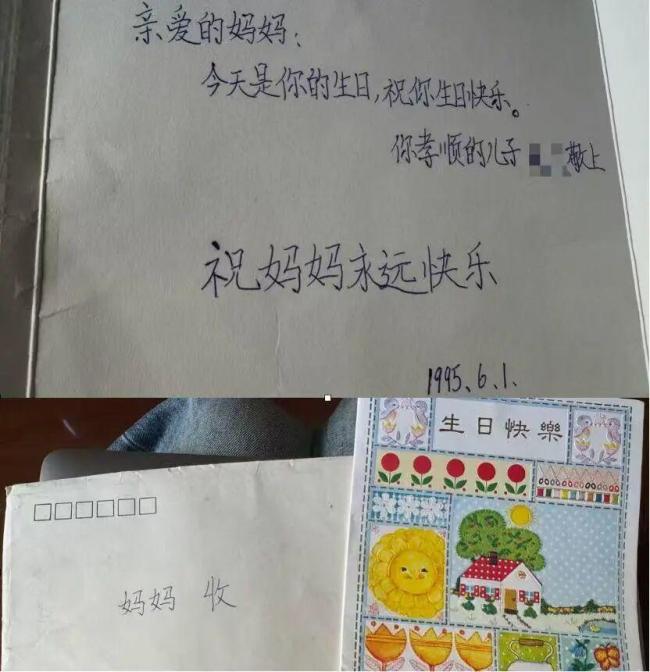 亲爱的妈妈：
今天是你的生日，祝你生日快乐。
你孝顺的儿子 敬上
祝妈妈永远快乐
1995.6.1.
生日快樂
妈妈 收